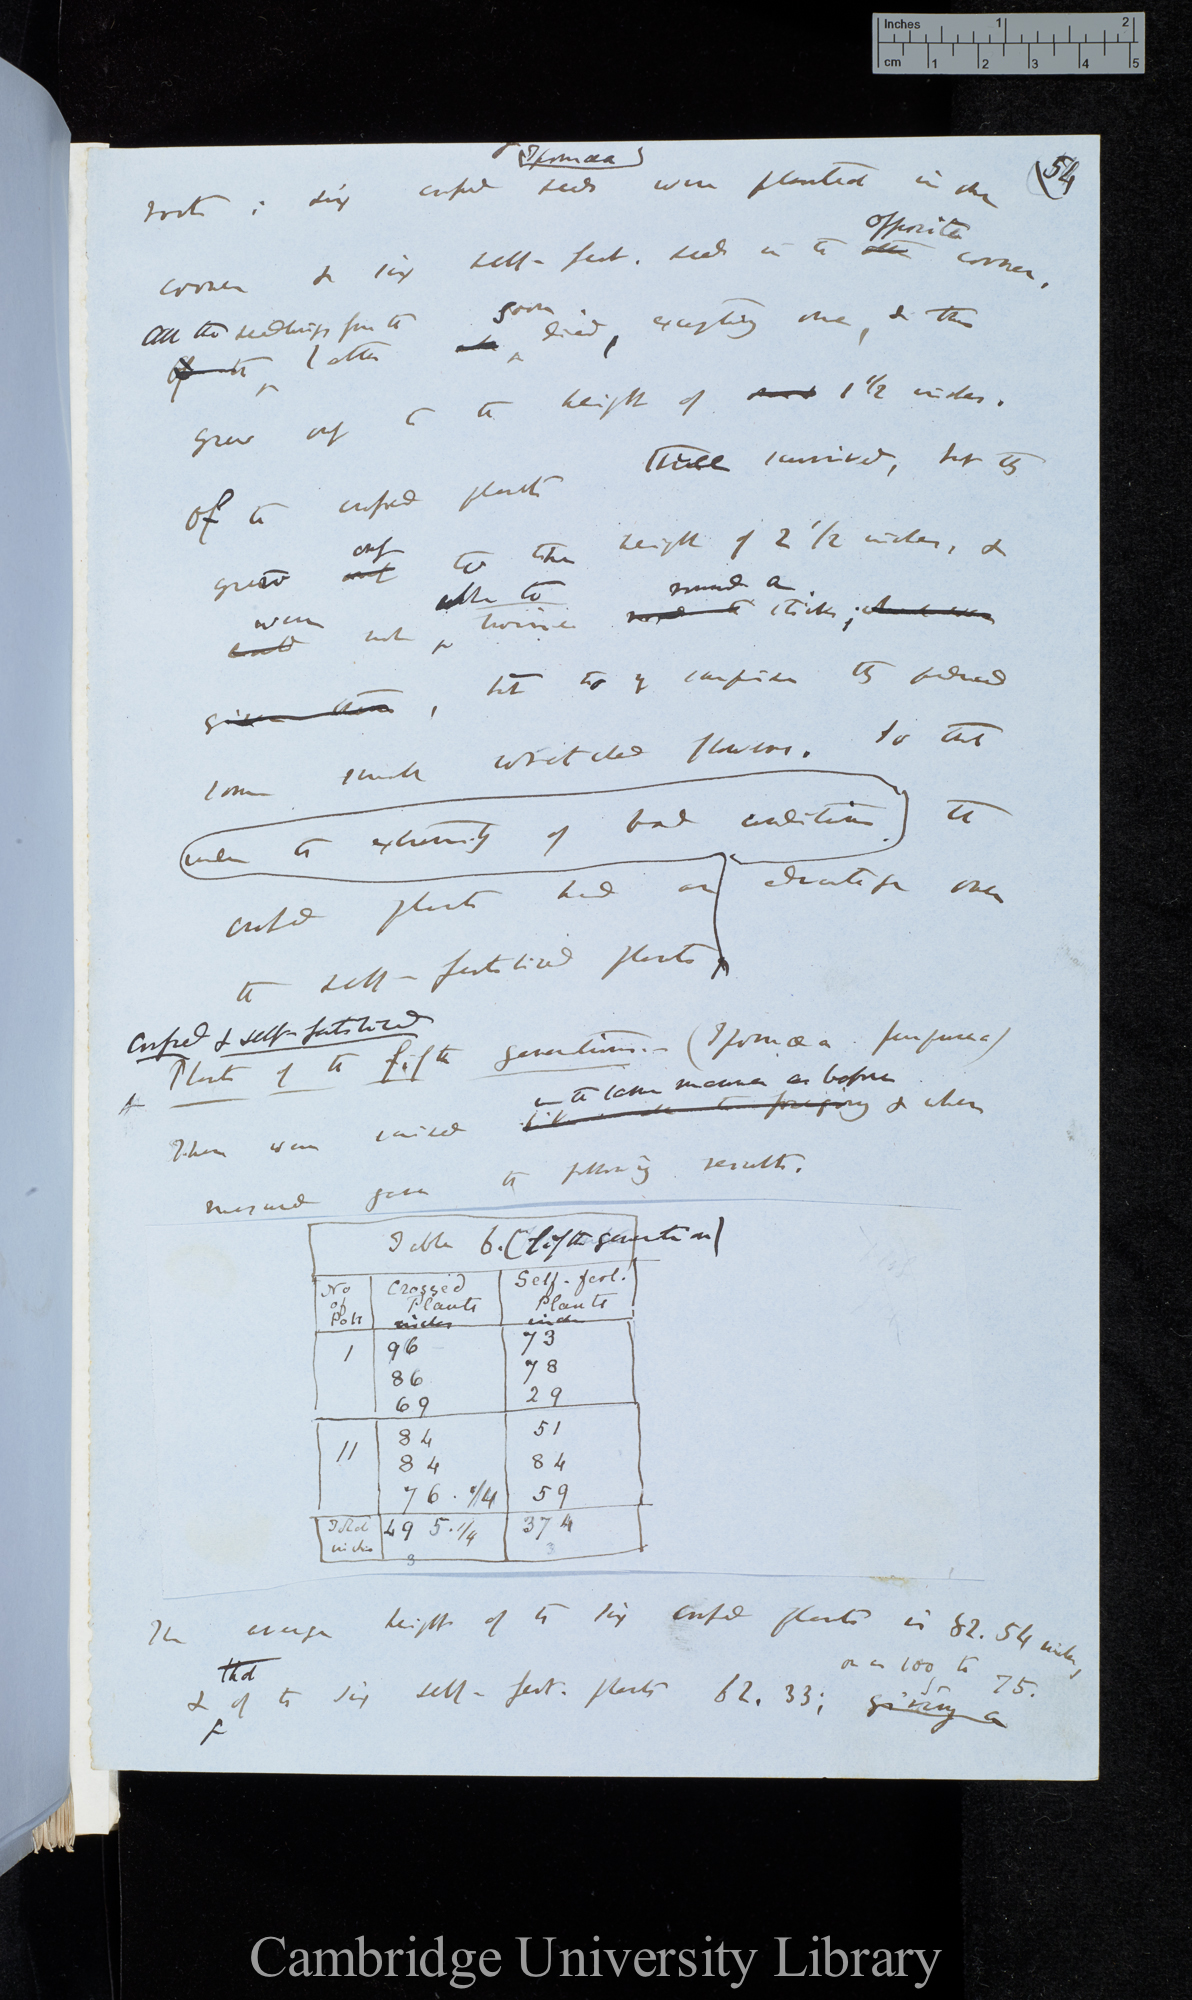 Inches 1 2
cm 1 2 3 4 5
(Ipomœa)
54
roots ; six crossed seeds were planted in one
opposite
corner & six self-fert. seeds in the corner,
All the seedlings from the soon
latter died, excepting one, & this
grew up to the height of 1 1/2 inches.
Of the crossed plants three survived, but they
up
grew to the height of 2 1/2 inches, &
were able to round a
not twine stick;
, but to my surprise they produced
some small wretched flowers. So that
under the extremity of bad conditions the
crossed plants had an advantage over
the self-fertilised plants.
Crossed & self-fertilised
Plants of the fifth generation.— (Ipomœa purpurea)
in the same manner as before
These were raised & when
measured gave the following results.
Table 6. (fifth generation)
No of Pots Crossed Plants inches Self-fert. Plants inches
I 96 73
86 78
69 29
II 84 51
84 84
76.1/4 59
Total inches 495.1/4 374
3 3
The average height of the six crossed plants is 82.54 inches,
that or as 100 to 75.
& of the six self-fert. plants 62.33; giving a
Cambridge University Library